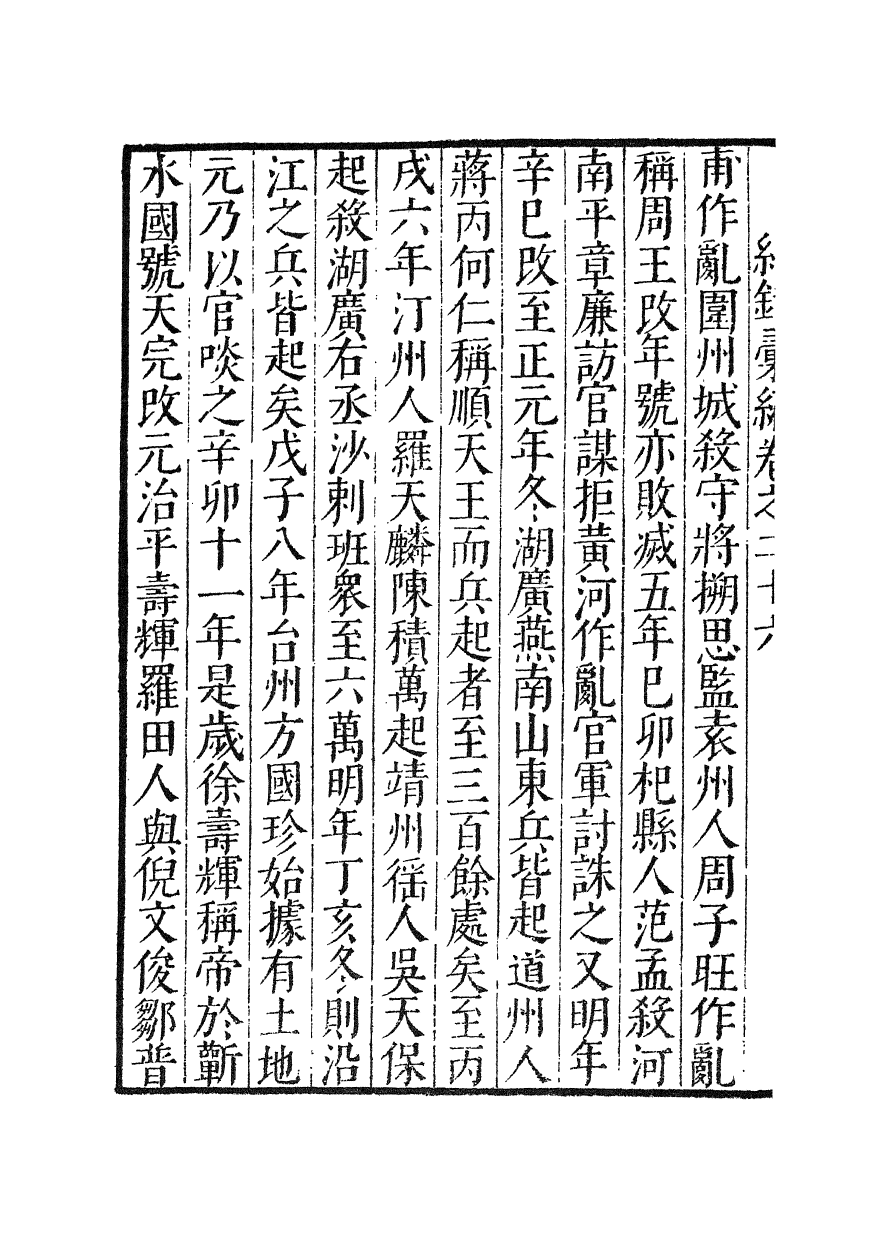 紀錄彙編卷之二十六
甫作亂圍州城殺守將搠思監袁州人周子旺作亂
稱周王改年號亦敗滅五年巳卯杞縣人范孟殺河
南平章廉訪官謀拒黃河作亂官軍討誅之又明年
辛巳改至正元年冬湖廣燕南山東兵皆起道州人
蔣丙何仁稱順天王而兵起者至三百餘處矣至丙
戌六年汀州人羅天麟陳積萬起靖州徭人吳天保
起殺湖廣右丞沙剌班衆至六萬明年丁亥冬則沿
江之兵皆起矣戊子八年台州方國珍始據有土地
元乃以官啖之辛卯十一年是歲徐壽輝稱帝於蘄
水國號天完改元治平壽輝羅田人與倪文俊鄒普